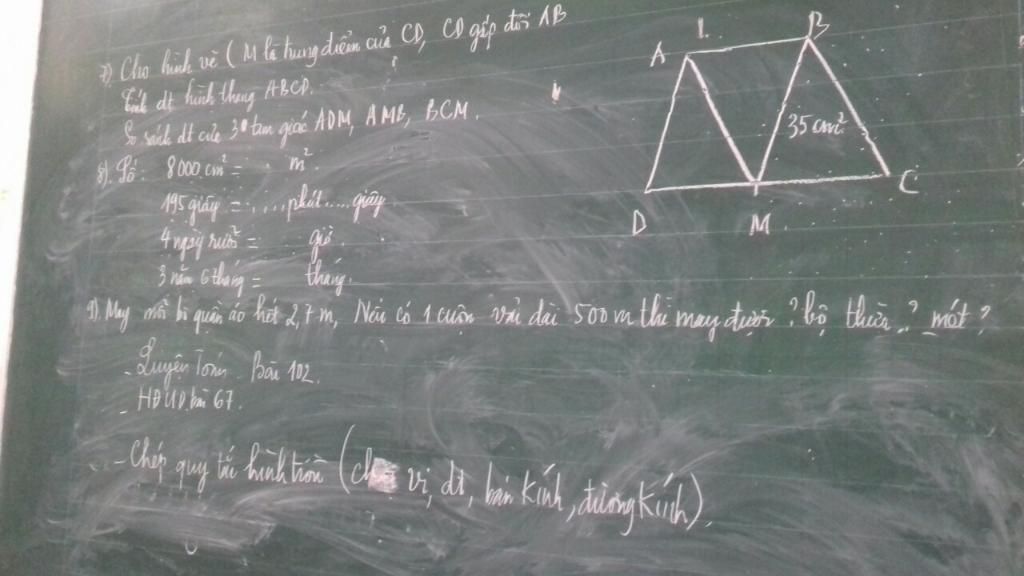 7) Cho hình vẽ (M là trung điểm của CD, CD gấp đôi AB
Tính dt hình thang ABCD.
So sánh dt của 3 tam giác ADM, AMB, BCM.
8). Số: 8000 cm² = . m²
195 giây = .....phút.....giây.
4 ngày rưỡi = giờ.
3 năm 6 tháng = tháng.
9) May mỗi bộ quần áo hết 2,7 m, Nếu có 1 cuộn vải dài 500 m thì may được ? bộ thừa ? mét ?
- Luyện Toán Bài 102.
- HĐƯD bài 67.
- Chép quy tắc hình tròn (chu vi, dt, bán kính, đường kính).
A B
35 cm²
D M C